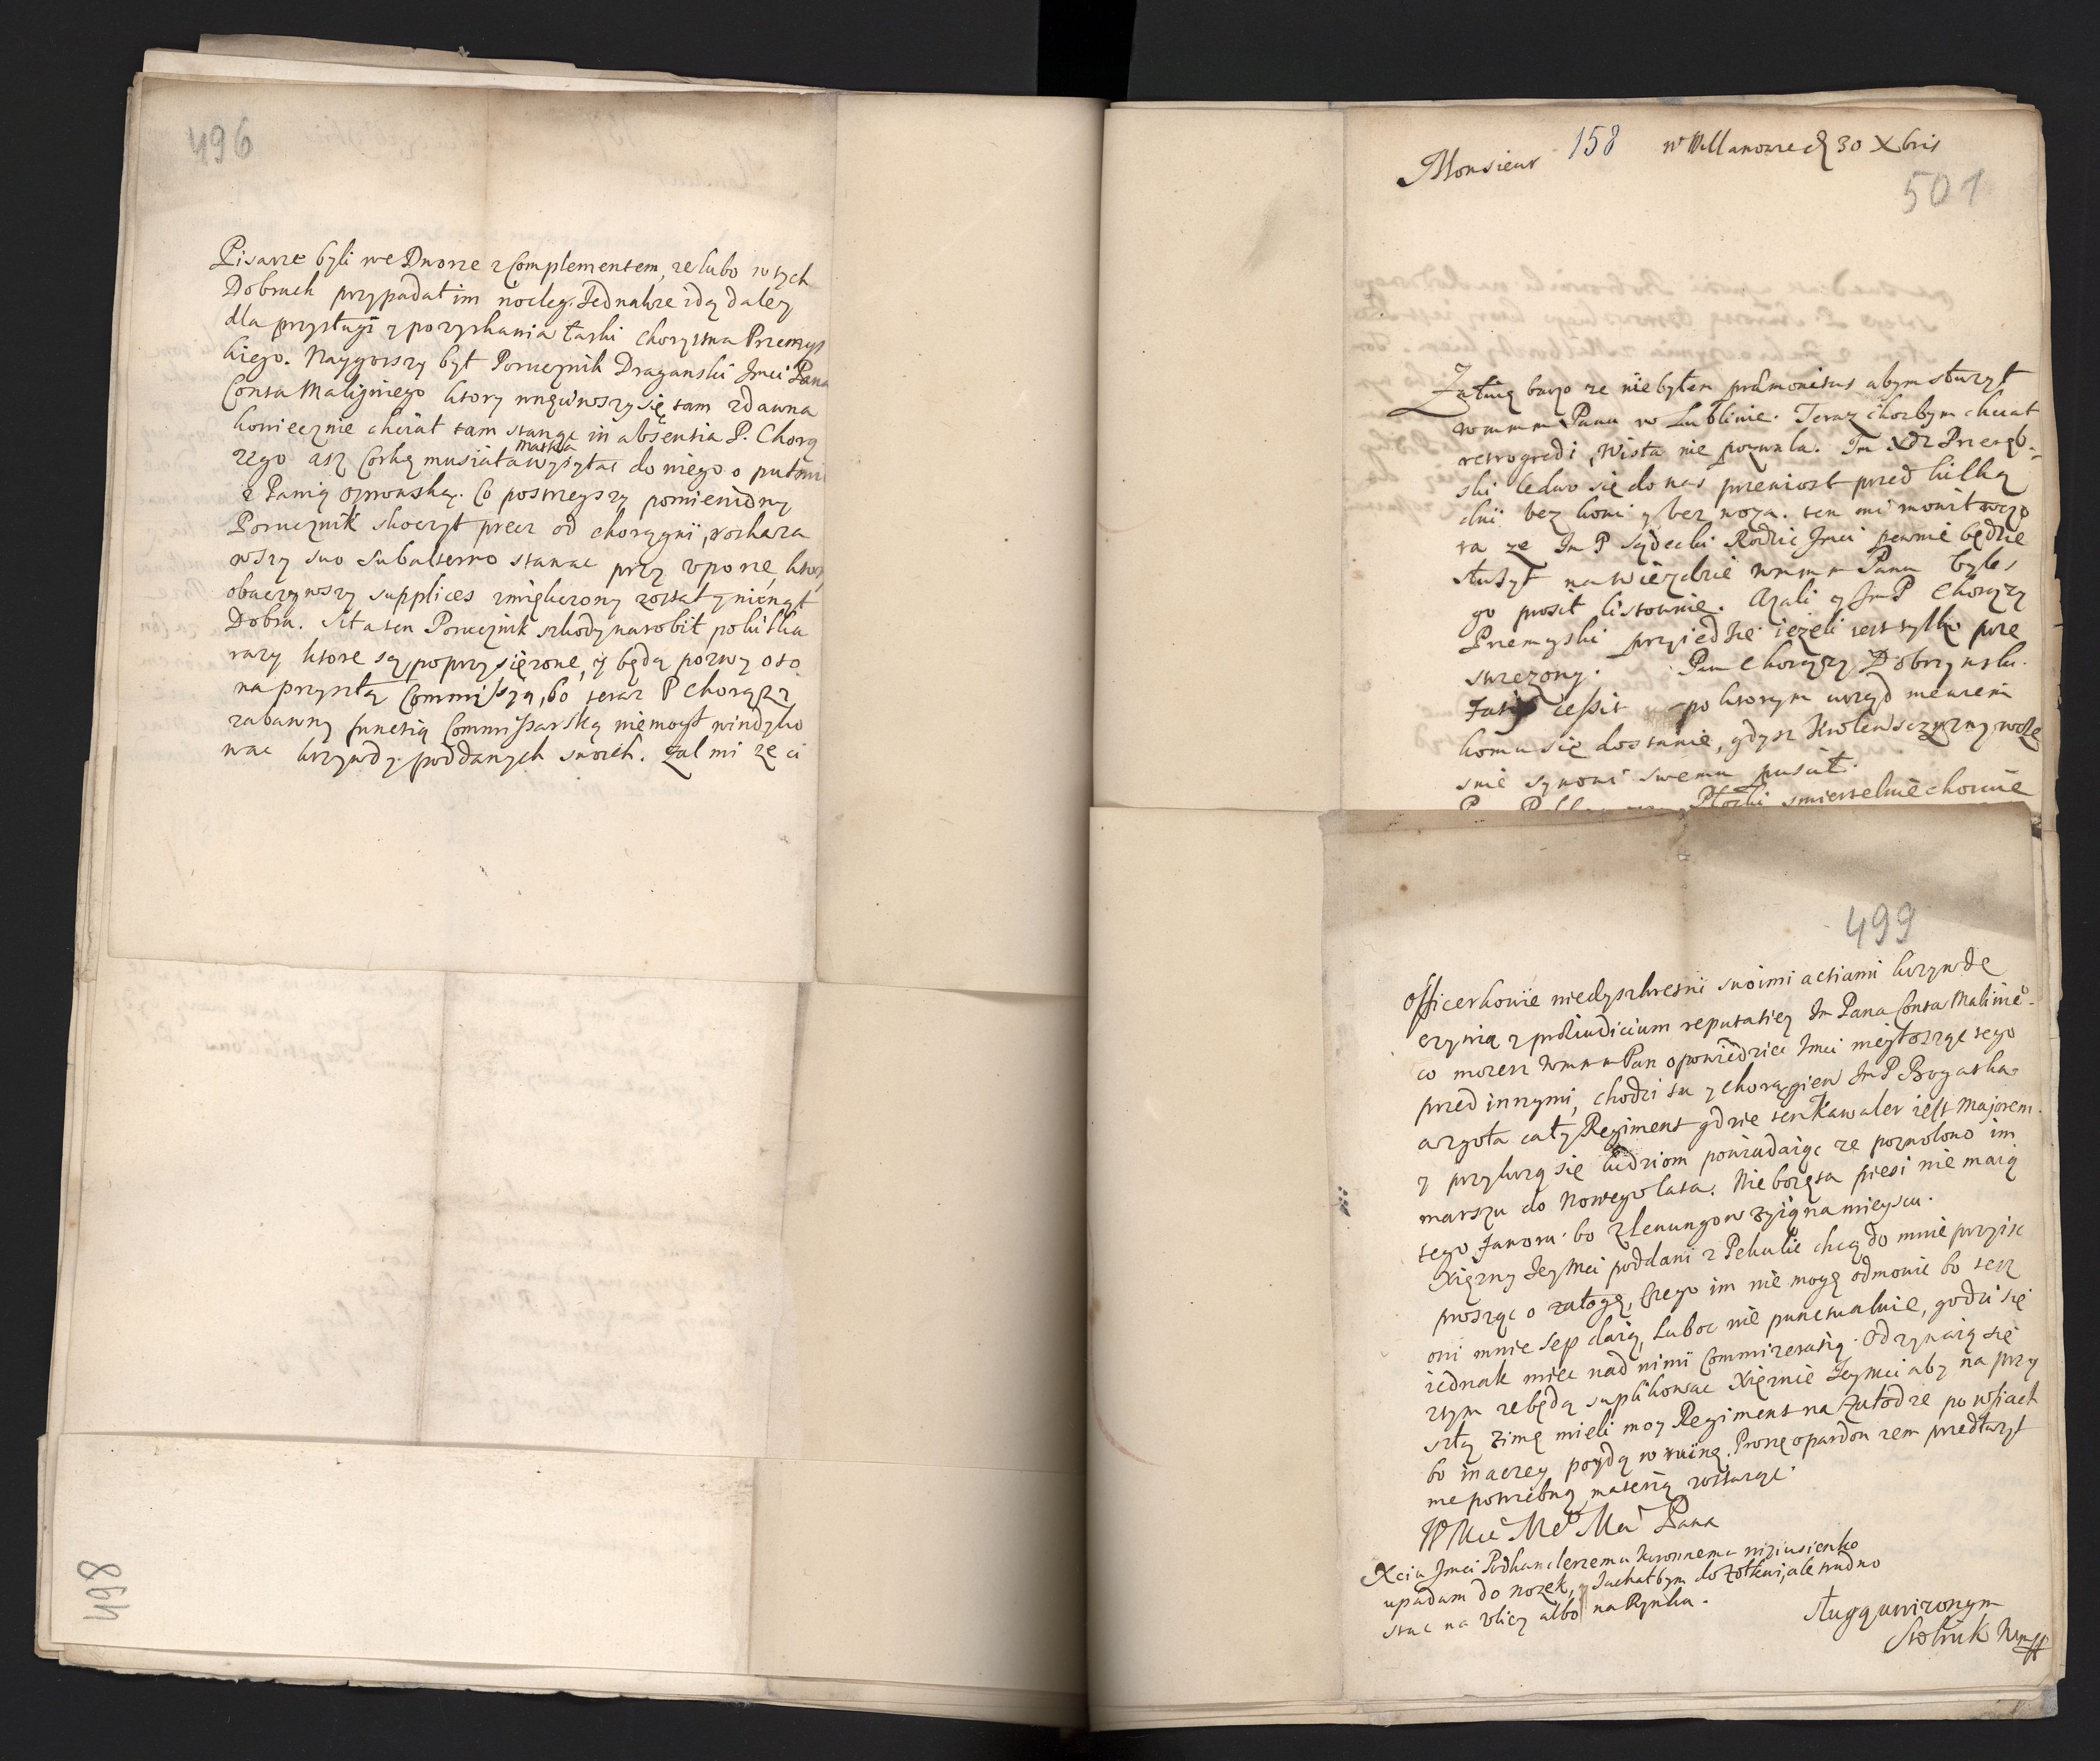 496
Pisarze byli we Dworze z Complementem, ze lubo w tych
Dobrach przypadał im nocleg. Jednakze idą daley
dla przysługi y pozyskania łaski Chorzstwa Przemys
kiego. Naygorszy był Porucznik Draganski Jmci Pana
Conta Maligniego ktory wnęciwszy się tam zdawna
koniecznie chciał tam stanąc in absentia P. Chorą
zego asz Corkę musiała Matka wysyłac do niego o putmi
z Panią ozrowską. Co postrzegszy pomieniony
Porucznik skoczył precz od chorągwi, roskaza
wszy suo Subalterno stanac przy uporze, ktory
obaczywszy supplices zmiękczony został y minął
Dobra. Siła ten Porucznik szkody narobił po kilka
razy ktore są poprzysięzone, y będą pozwy oto
na przyszłą Commissyą, bo teraz P Chorązy
zabawny functią Commissarską nie mogł windyko
wac krzywdy poddanych swoich. Zal mi ze ci
498
Monsieur 158 w Willanowie d 30 Xbris
501
Załuię barzo ze nie byłem praemonitus abym słuzył
wmmm Panu w Lublinie. Teraz choćbym chciał
retrogredi, Wisła nie pozwala. Im Xdz Przeręb-
ski ledwo się do nas przeniosł przed kilką
dni bez koni y bez woza. ten mi monit wczo
ra ze Jm P Sądecki Rodzic Jmci pewnie będzie
słuzył na wiezdzie wmmm Panu byles
go prosił listownie. Azali y Jm P Chorązy
Przemyski przyiedzie iezeli iest tylko prze
strezony. Pan Chorązy Dobrzynski
Fatis cessit po ktorym urząd niewiem
komu się dostanie, gdysz Krolewsczyzny wcze
snie synowi swemu puscił.
Płocki smiertelnie choruie
499
Officerkowie niedyszkretni swoimi actiami krzywdę
czynią z praeiudicium reputatiey Jm Pana Conta Malinie-
co mozesz wmmm Pan opowiedziec Jmci nie głosząc tego
przed innymi, chodzi tu y chorągiew Jm P Bogatka
a zgoła cały Regiment gdzie ten Kawaler iest Majorem
y przykrzą się ludziom powiadaiąc ze pozwolono im
marszu do Nowego lata. Nieboręta piesi nie maią
tego Faworu bo z Lenungow zyią na mieyscu.
Xięzny Jeymci poddani z Pekulic chcą do mnie przyisc
prosząc o załogę, czego im nie mogę odmowic bo tesz
oni mnie sep daią, Luboc nie punctualnie, godzi się
iednak miec nad nimi Commizeratią. Odzywaią się
ztym ze będą suplikowac Xięznie Jeymci aby na przy
szłą zimę mieli moy Regiment na Załodze po wsiach
bo inaczey poydą w ruinę. Proszę o pardon zem przedłuzył
niepotrzebną materią zostaiąc
WMci Mego Mci Pana
Xciu Jmci Podkanclerzemu koronnemu niziusienko
upadam do nozek, y Jachałbym do Zołkwi, ale trudno
stac na ulicy albo na Rynku.
sługą unizonym
Stolnik